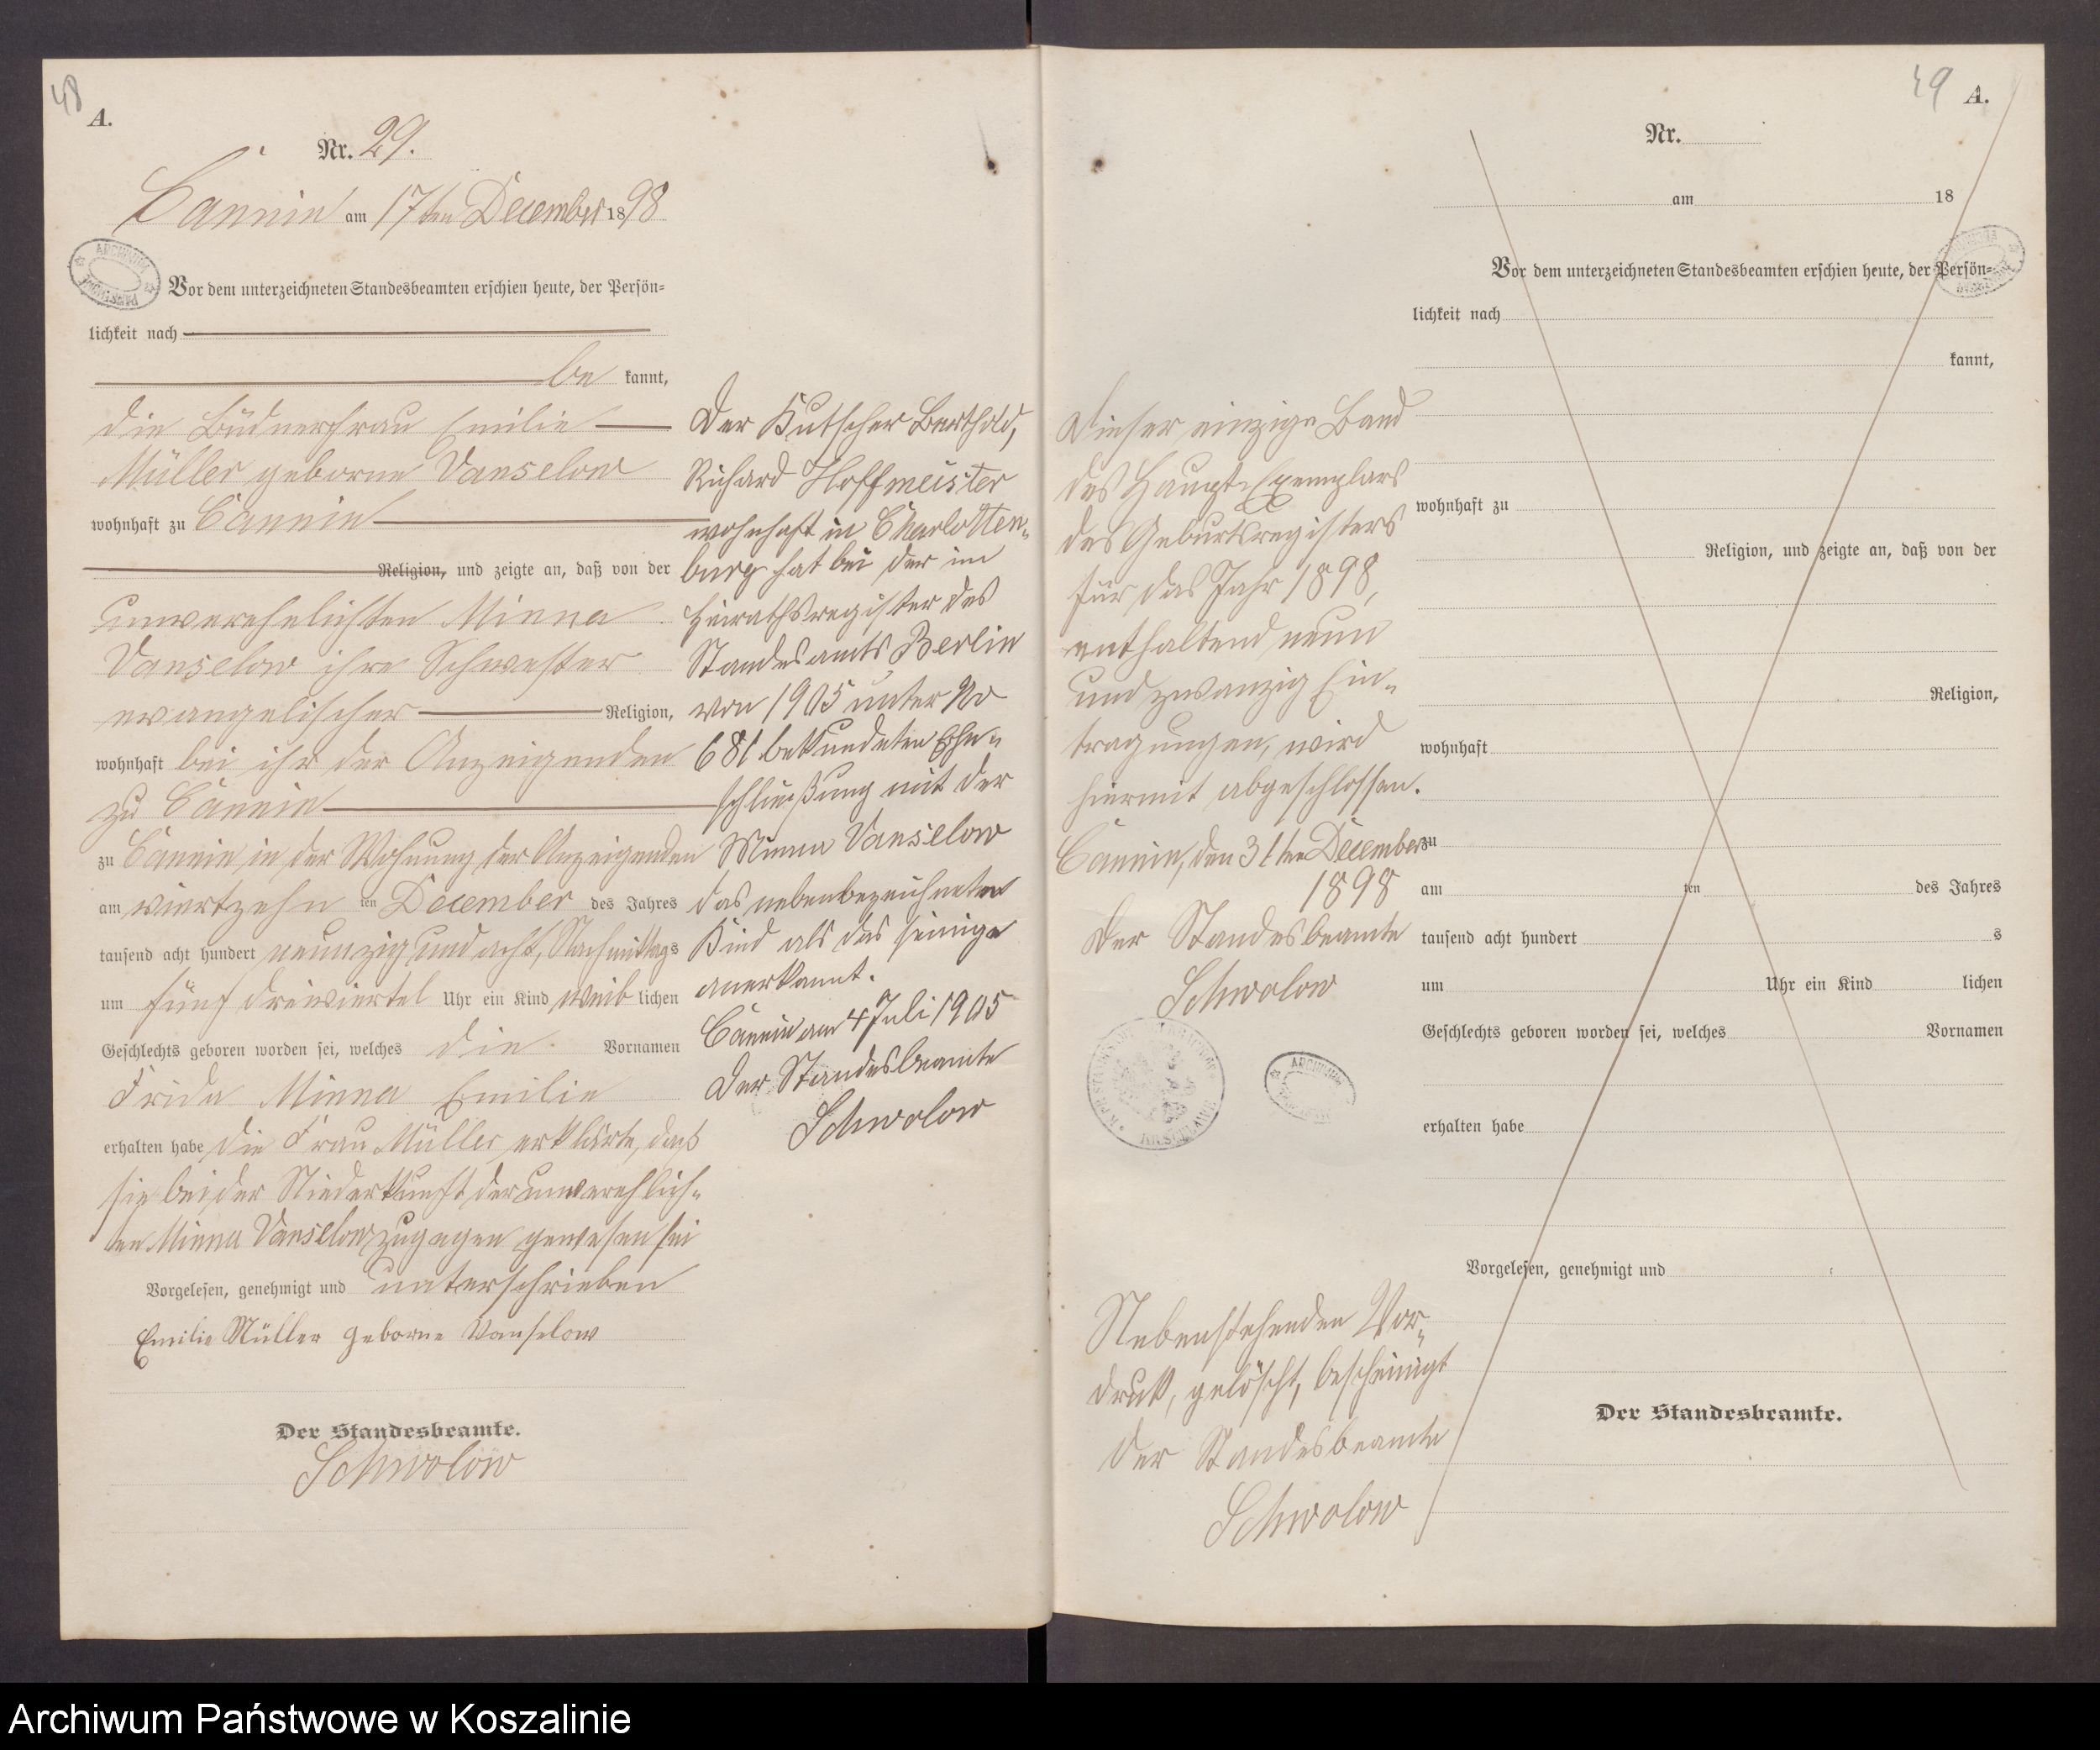 48
A.
Nr. 29.
Cannin am 17ten December 1898
Vor dem unterzeichneten Standesbeamten erschien heute, der Persön-
lichkeit nach
be kannt,
die Büdnerfrau Emilie
Müller geborne Vanselow
wohnhaft zu Cannin
Religion, und zeigte an, daß von der
unverehelichten Minna
Vanselow ihre Schwester
evangelischer Religion,
wohnhaft bei ihr der Anzeigenden
zu Cannin
zu Cannin, in der Wohnung der Anzeigenden
am viertzehn ten December des Jahres
tausend acht hundert neunzig und acht, Nachmittags
um fünf dreiviertel Uhr ein Kind weib lichen
Geschlechts geboren worden sei, welches die Vornamen
Frida Minna Emilie
erhalten habe die Frau Müller erklärte, daß
sie bei der Niederkunft der unverehlich-
ten Minna Vanselow zugegen gewesen sei
Vorgelesen, genehmigt und unterschrieben
Emilie Müller geborne Vanselow
Der Standesbeamte.
Schwolow
Der Kutscher Berthold,
Richard Hoffmeister
wohnhaft in Charlotten-
burg hat bei der im
Heirathsregister des
Standesamts Berlin
von 1905 unter No
681 bekundeten Ehe-
schließung mit der
Minna Vanselow
das nebenbezeichnete
Kind als das seinige
anerkannt.
Cannin am 4 Juli 1905
Der Standesbeamte
Schwolow
49
A.
Nr.
am 18
Vor dem unterzeichneten Standesbeamten erschien heute, der Persön-
lichkeit nach
kannt,
wohnhaft zu
Religion, und zeigte an, daß von der
Religion,
wohnhaft
zu
am ten des Jahres
tausend acht hundert s
um Uhr ein Kind lichen
Geschlechts geboren worden sei, welches Vornamen
erhalten habe
Vorgelesen, genehmigt und
Der Standesbeamte.
Dieser einzige Band
des Haupt-Exemplars
des Geburtsregisters
für das Jahr 1898,
enthaltend neun
und zwanzig Ein-
tragungen, wird
hiermit abgeschlossen.
Cannin, den 31ten December
1898
Der Standesbeamte
Schwolow
ARCHIWUM
Nebenstehenden Vor-
druck, gelöscht, bescheinigt
Der Standesbeamte
Schwolow
Archiwum Państwowe w Koszalinie